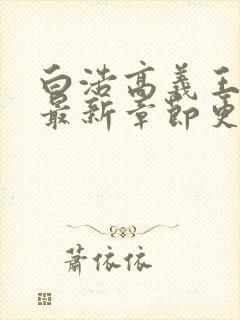 白浩高义王
最新章节更
萧依依